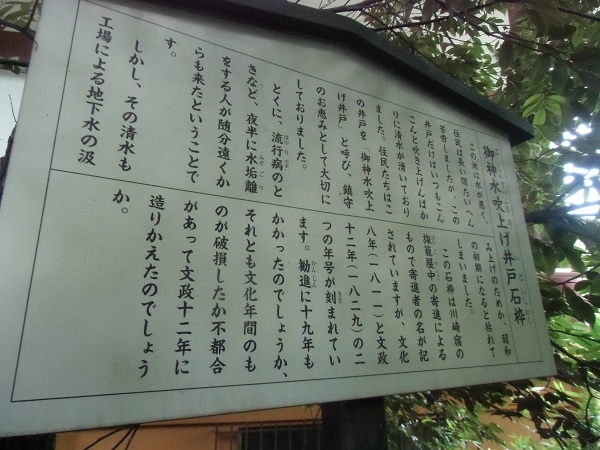 御神水吹上げ井戸石枠
この地は水が悪く、
住民は長い間たいへん
苦労しましたが、この
井戸だけはいつもこん
こんと吹き上げんばか
りに清水が湧いており
ました。住民たちはこ
の井戸を「御神水吹上
げ井戸」と呼び、鎮守
のお恵みとして大切に
しておりました。
とくに、流行病のと
きなど、夜半に水垢離
をする人が随分遠くか
らも来たということで
す。
しかし、その清水も
工場による地下水の汲
み上げのためか、昭和
の初期になると枯れて
しまいました。
この石枠は川崎宿の
旅籠屋中の寄進による
もので寄進者の名が記
されていますが、文化
八年(一八一一)と文政
十二年(一八二九)の二
つの年号が刻まれてい
ます。勧進に十九年も
かかったのでしょうか、
それとも文化年間のも
のが破損したか不都合
があって文政十二年に
造りかえたのでしょう
か。